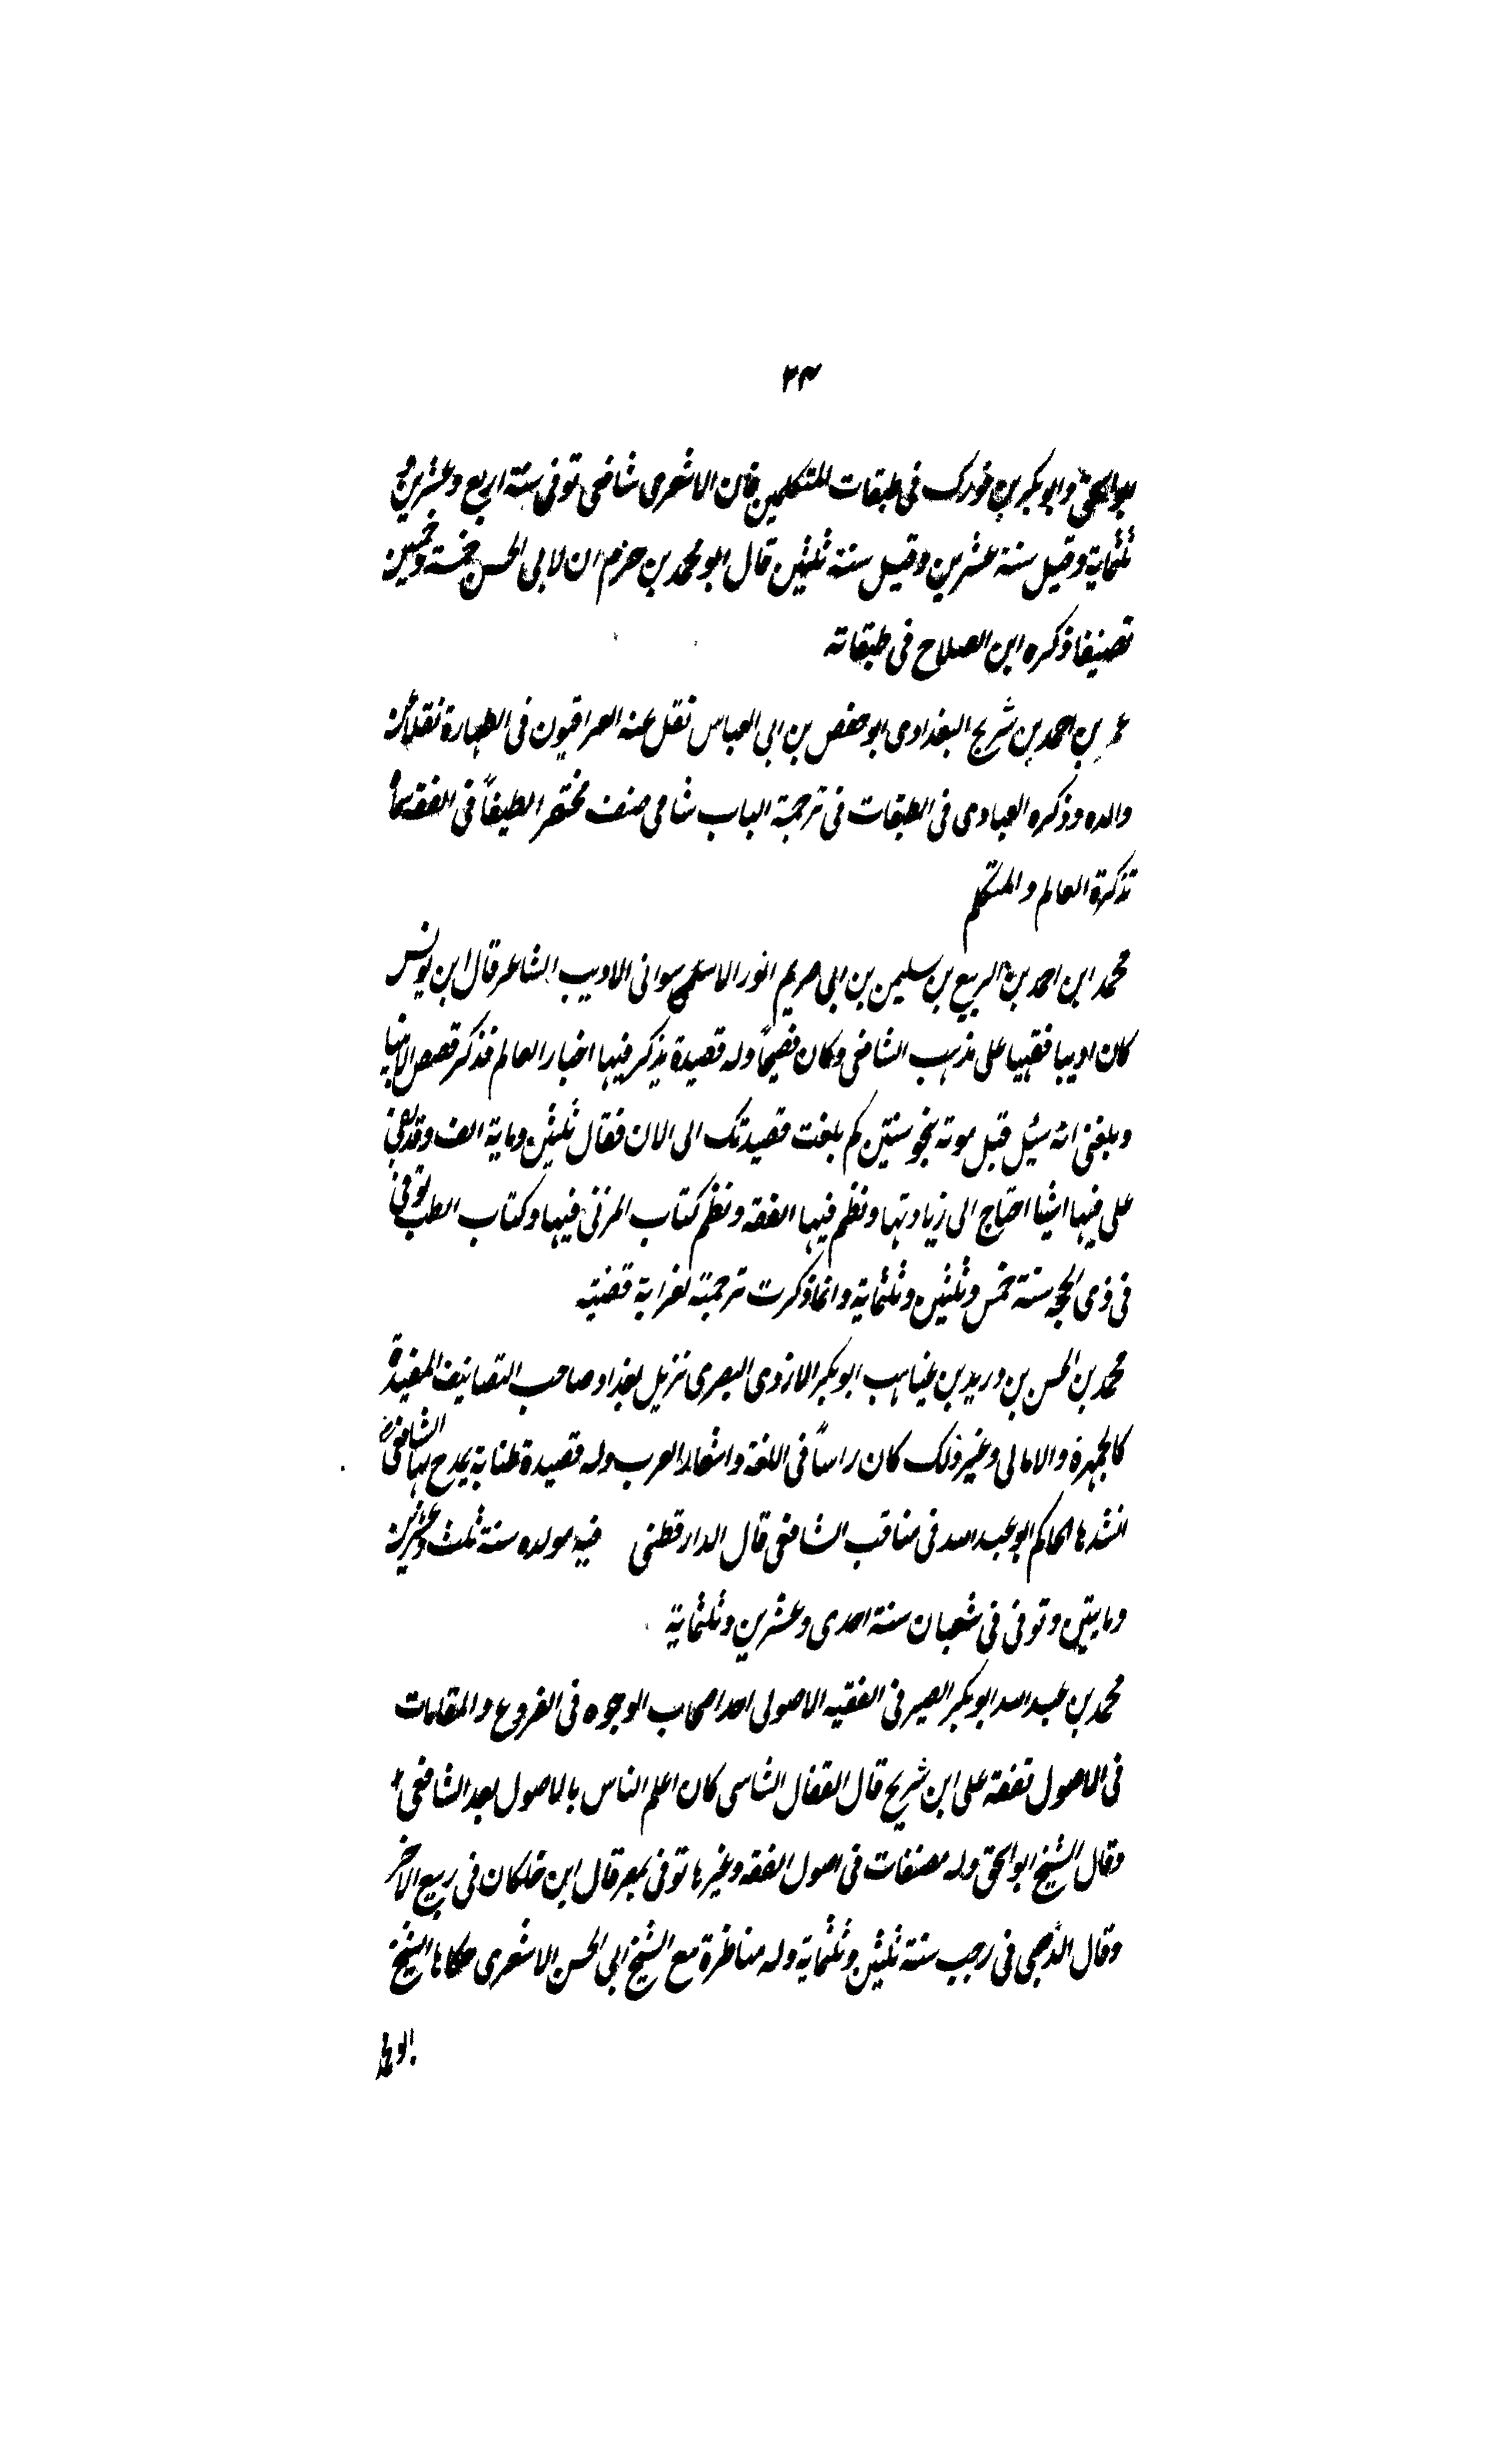 ٣٣
ابو اسحق وابو بكر بن فورك فى طبقات المتكلمين فان الاشعرى شافعى توفى سنة اربع وعشرين و
ثلثماية وقيل سنة عشرين وقيل سنة ثلثين قال ابو محمد بن حزم ان لابى الحسن خمسة وخمسين
تصنيفا ذكره ابن الصلاح فى طبقاته
عمر بن احمد بن شريح البغدادى ابو حفص بن ابى العباس نقل عنه العراقيون فى الطهارة نقلا عن
والده وذكره العبادى فى الطبقات فى ترجمة الباب شامى صنف مختصرا لطيفاً فى الفقه سماه
تذكرة العالم والمتعلم
محمد ابن احمد بن الربيع بن سليمن بن ابى مريم الاسوانى الاديب الشاعر قال ابن يونس
كان اديبا فقيها على مذهب الشافعى وكان فصيحاً وله قصيدة يذكر فيها اخبار العالم فذكر قصص الانبيا
وبلغنى انه سئيل قبل موته بنحو سنتين كم بلغت قصيدتك الى الان فقال ثلثين وماية الف وقد بقى
على فيها اشيا احتاج الى زيادتها ونظم فيها الفقه ونظم كتاب المزنى فيها وكتاب الطب توفى
فى ذى الحجه سنة خمس وثلثين وثلثماية وانما ذكرت ترجمته لغرابة قضيته
محمد بن الحسن بن دريد بن عتاهيب ابو بكر الازدى البصرى نزيل بغداد صاحب التصانيف المفيدة
كالجمهرة والامالى وغير ذلك كان راساً فى اللغة واشعار العرب وله قصيدة طنابة يمدح بها الشافعى
انشدها الحاكم ابو عبد الله فى مناقب الشافعى قال الدار قطنى فيه مولده سنة ثلث وعشرين
ومايتين وتوفى فى شعبان سنة احدى وعشرين وثلثماية
محمد بن عبد الله ابو بكر الصيرفى الفقيه الاصولى احد اصحاب الوجوه فى الفروع والمقامات
فى الاصول تفقه على ابن شريح قال القفال الشاسى كان اعلم الناس بالاصول بعد الشافعى
وقال الشيخ ابو اسحق وله مصنفات فى اصول الفقه وغيرها توفى بمصر قال ابن خلكان فى ربيع الاخر
وقال الذهبى فى رجب سنة ثلثين وثلثماية وله مناظرة مع الشيخ ابى الحسن الاشعرى حكاها الشيخ